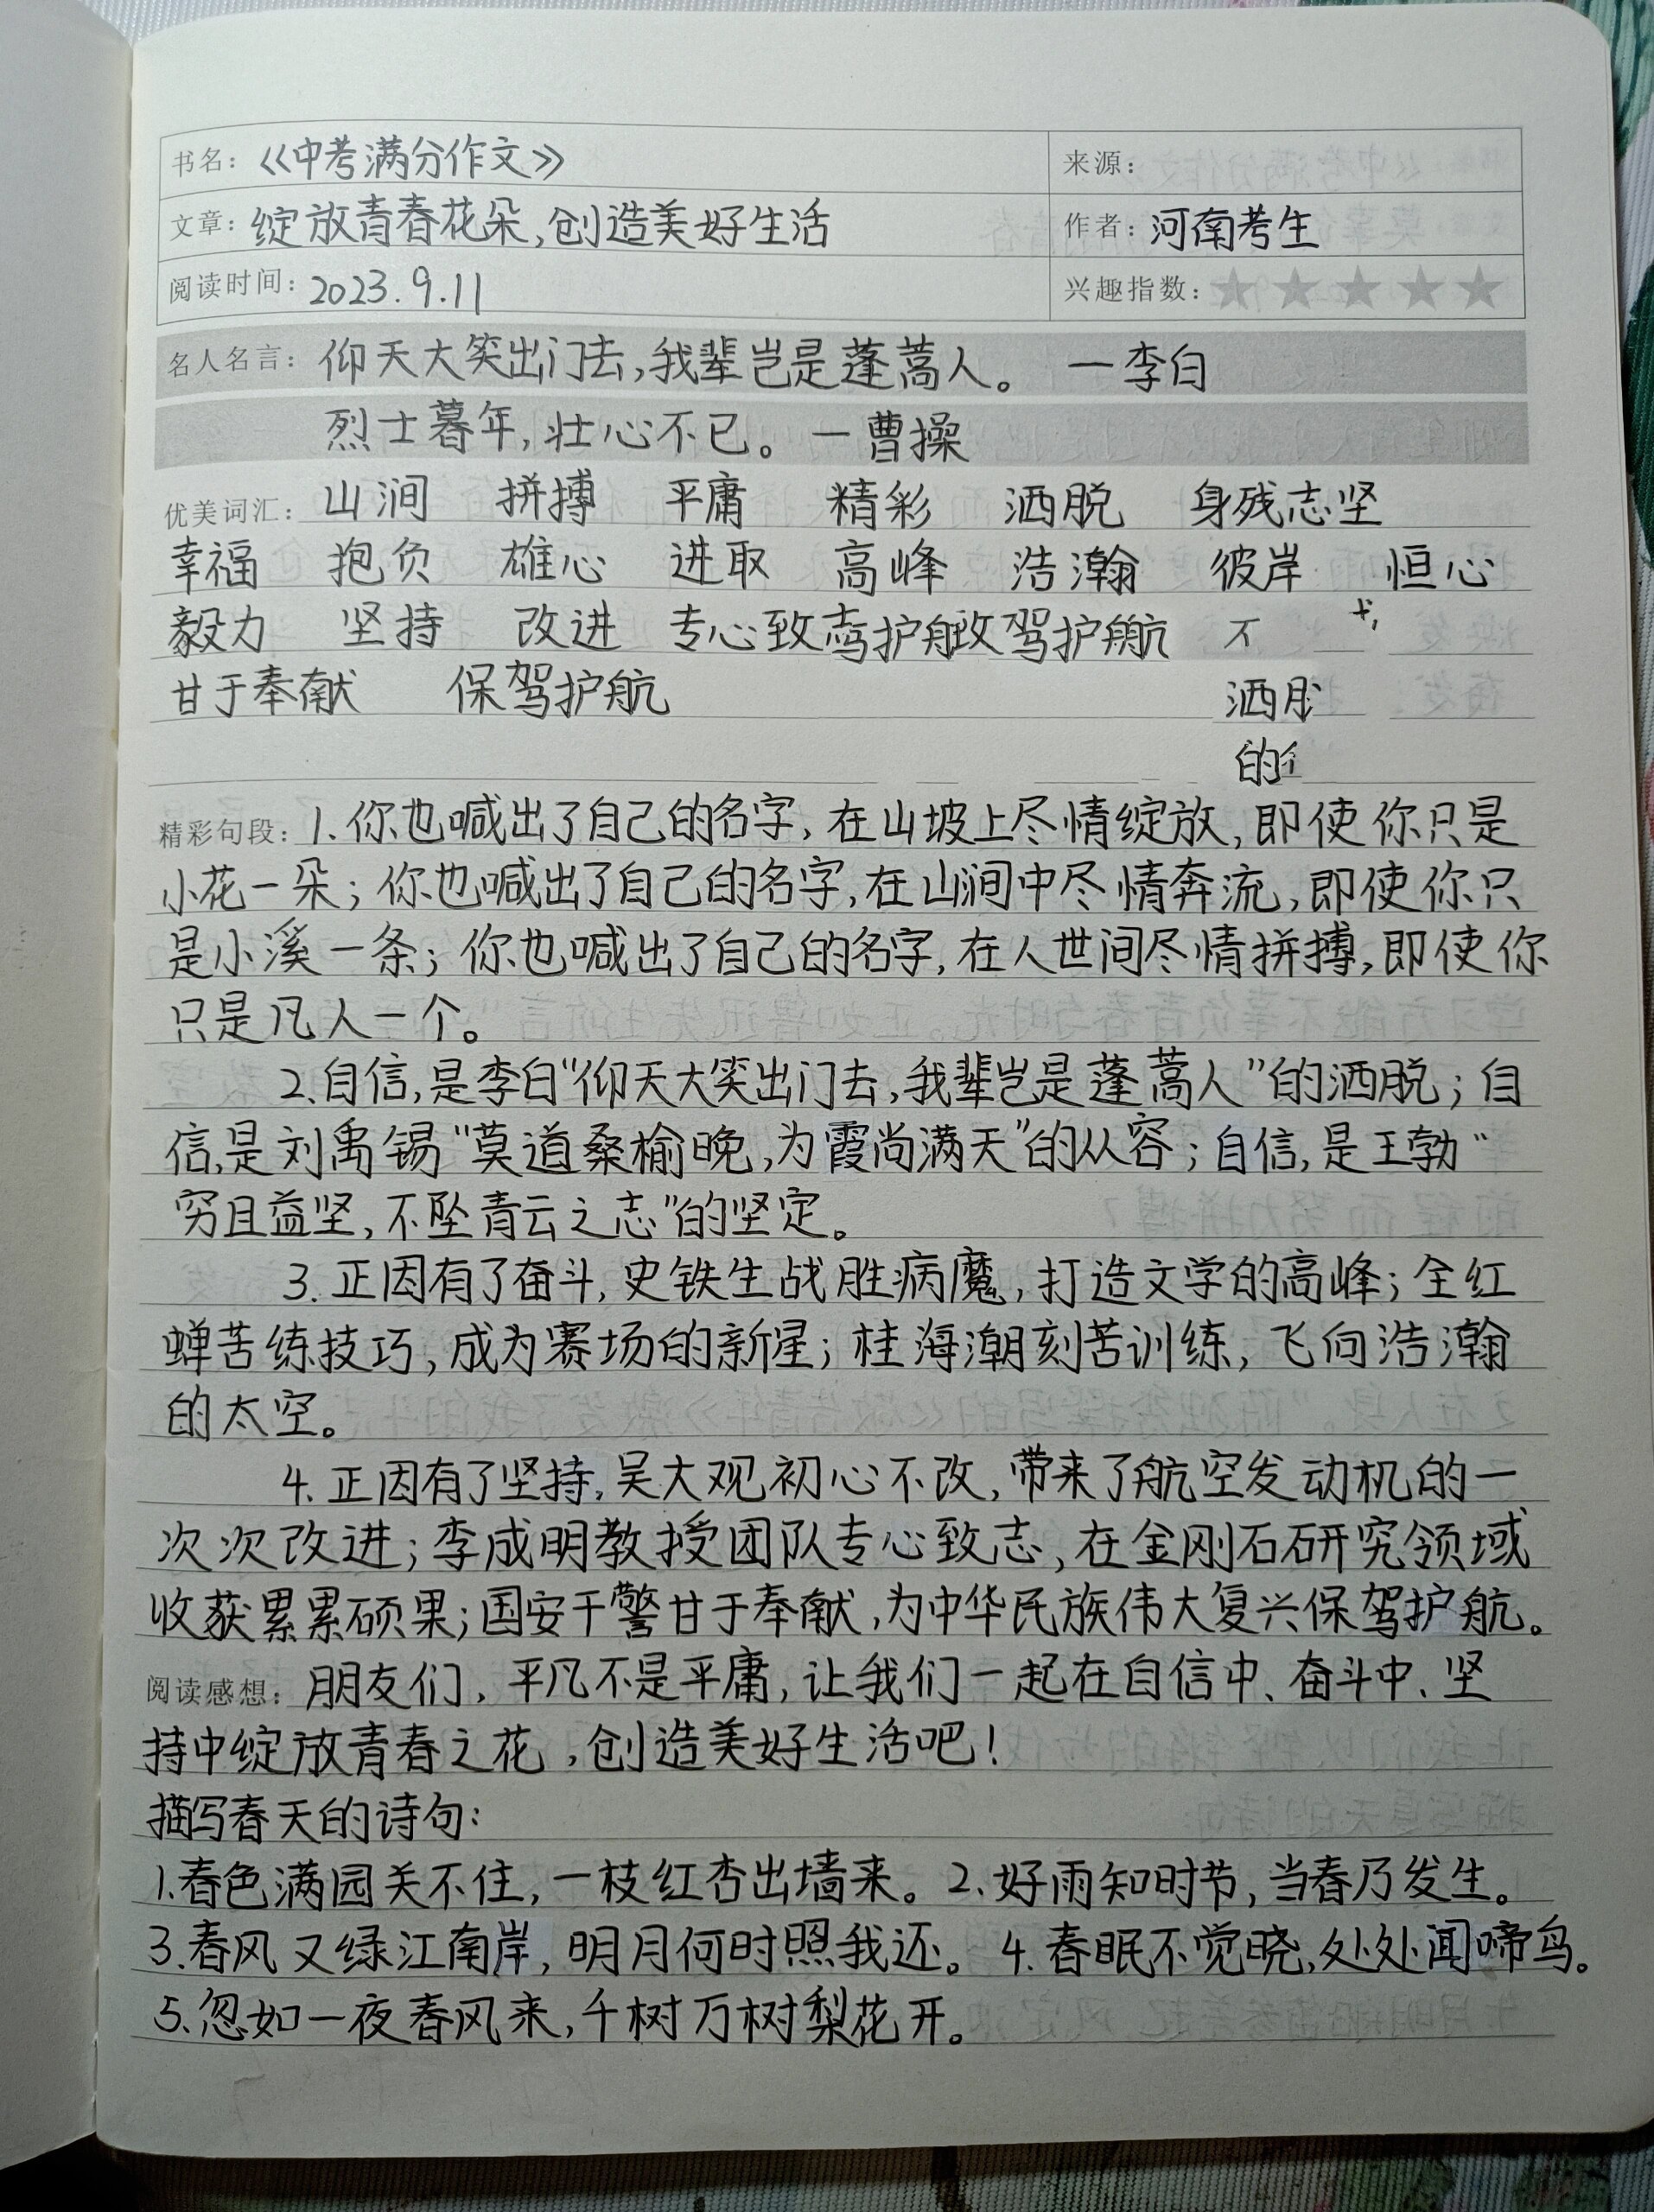 书名：《中考满分作文》 来源：
文章：绽放青春花朵,创造美好生活 作者：河南考生
阅读时间：2023.9.11 兴趣指数：★★★★★
名人名言：仰天大笑出门去,我辈岂是蓬蒿人。 —李白
烈士暮年,壮心不已。—曹操
优美词汇：山涧 拼搏 平庸 精彩 洒脱 身残志坚
幸福 抱负 雄心 进取 高峰 浩瀚 彼岸 恒心
毅力 坚持 改进 专心致志 驾护航
甘于奉献 保驾护航 洒
的
精彩句段：1.你也喊出了自己的名字,在山坡上尽情绽放,即使你只是
小花一朵;你也喊出了自己的名字,在山涧中尽情奔流,即使你只
是小溪一条;你也喊出了自己的名字,在人世间尽情拼搏,即使你
只是凡人一个。
2.自信,是李白“仰天大笑出门去,我辈岂是蓬蒿人”的洒脱;自
信,是刘禹锡“莫道桑榆晚,为霞尚满天”的从容;自信,是王勃“
穷且益坚,不坠青云之志”的坚定。
3.正因有了奋斗,史铁生战胜病魔,打造文学的高峰;全红
蝉苦练技巧,成为赛场的新星;桂海潮刻苦训练,飞向浩瀚
的太空。
4.正因有了坚持,吴大观初心不改,带来了航空发动机的一
次次改进;李成明教授团队专心致志,在金刚石研究领域
收获累累硕果;国安干警甘于奉献,为中华民族伟大复兴保驾护航。
阅读感想：朋友们,平凡不是平庸,让我们一起在自信中、奋斗中、坚
持中绽放青春之花,创造美好生活吧!
描写春天的诗句:
1.春色满园关不住,一枝红杏出墙来。2.好雨知时节,当春乃发生。
3.春风又绿江南岸,明月何时照我还。4.春眠不觉晓,处处闻啼鸟。
5.忽如一夜春风来,千树万树梨花开。